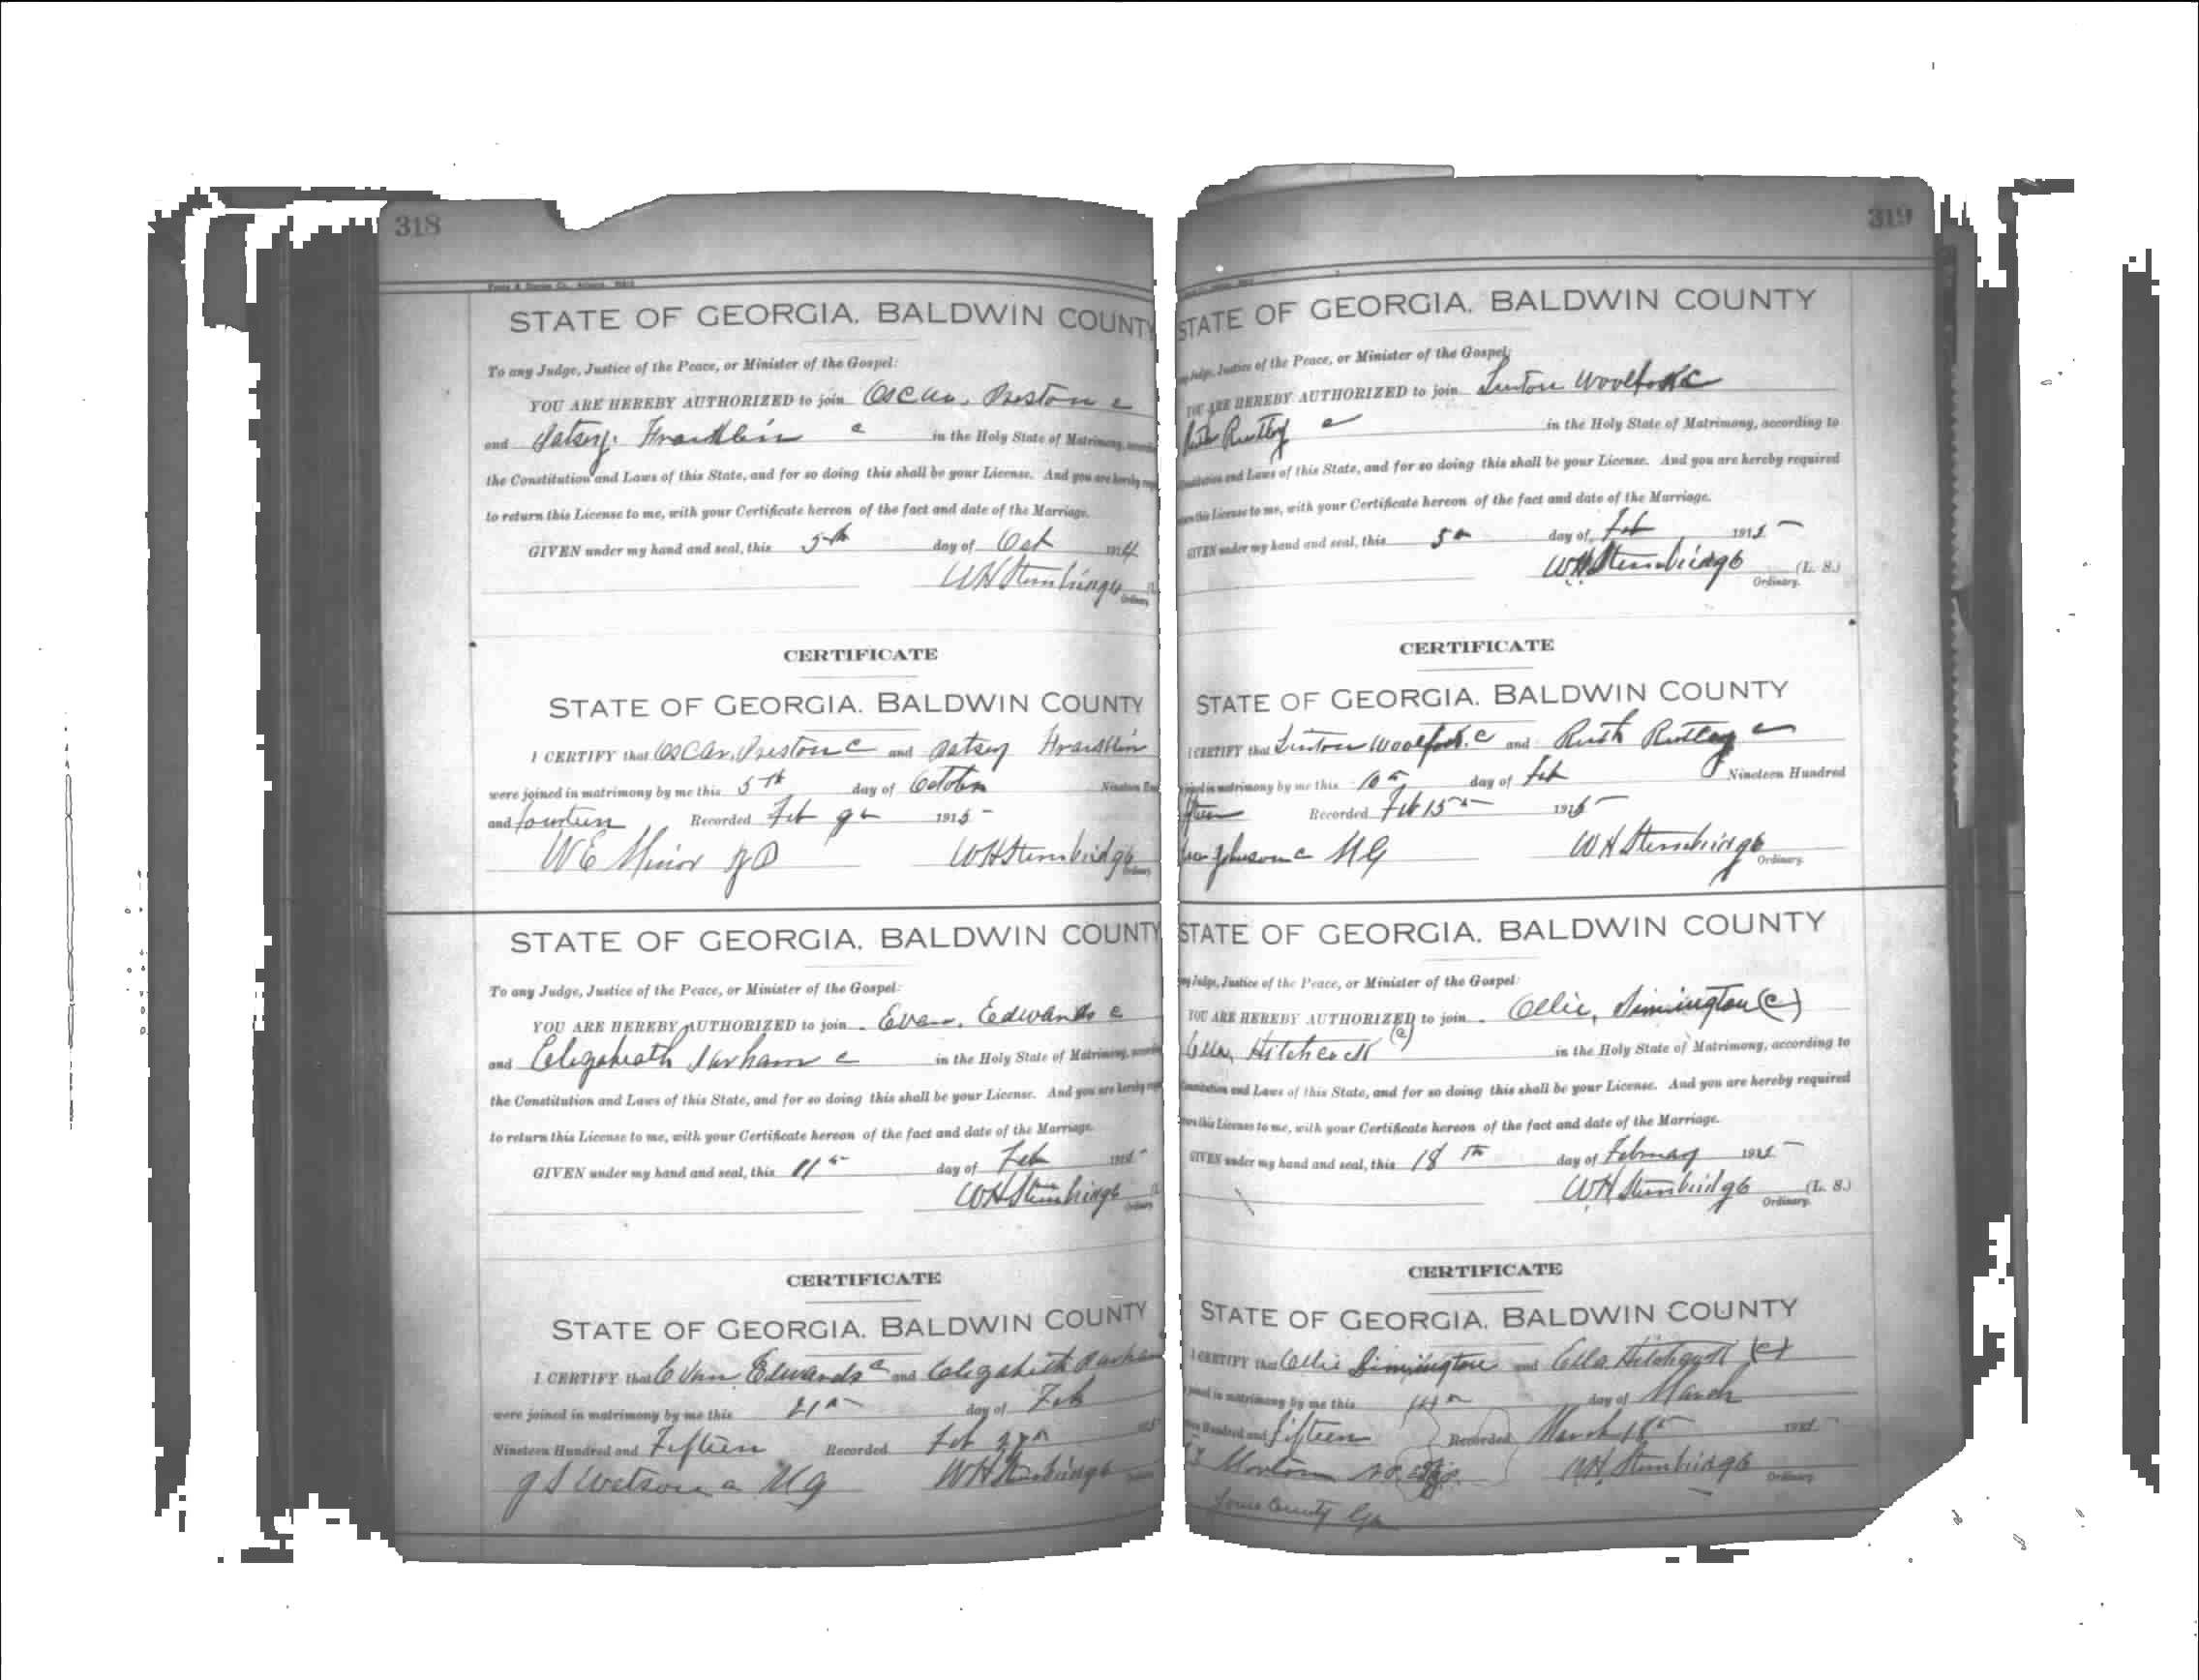 318
STATE OF GEORGIA. BALDWIN COUNTY
To any Judge, Justice of the Peace, or Minister of the Gospel:
YOU ARE HEREBY AUTHORIZED to join Oscar, Preston c
and Patsey. Franklin c in the Holy State of Matrimony,
the Constitution and Laws of this State, and for so doing this shall be your License. And you are hereby
to return this License to me, with your Certificate hereon of the fact and date of the Marriage.
GIVEN under my hand and seal, this 5th day of Oct 1914
WH Stembridge
Ordinary
CERTIFICATE
STATE OF GEORGIA. BALDWIN COUNTY
I CERTIFY that Oscar, Preston c and Patsey Franklin
were joined in matrimony by me this 5th day of October Nineteen
and fourteen Recorded Feb 9th 1915
W E Minor WH Stembridge
Ordinary
STATE OF GEORGIA. BALDWIN COUNTY
To any Judge, Justice of the Peace, or Minister of the Gospel:
YOU ARE HEREBY AUTHORIZED to join Evan, Edwards c
and Elizabeath Parham c in the Holy State of Matrimony,
the Constitution and Laws of this State, and for so doing this shall be your License. And you are hereby
to return this License to me, with your Certificate hereon of the fact and date of the Marriage.
GIVEN under my hand and seal, this 11th day of Feb 1915
WH Stembridge
Ordinary
CERTIFICATE
STATE OF GEORGIA. BALDWIN COUNTY
I CERTIFY that Evan Edwards c and Elizabeth Parham
were joined in matrimony by me this 21st day of Feb
Nineteen Hundred and Fifteen Recorded Feb 1915
J S Watson c M G WH Stembridge
319
STATE OF GEORGIA. BALDWIN COUNTY
Judge, Justice of the Peace, or Minister of the Gospel:
YOU ARE HEREBY AUTHORIZED to join Linton Woolfork c
Ruth Rutley c in the Holy State of Matrimony, according to
and Laws of this State, and for so doing this shall be your License. And you are hereby required
this License to me, with your Certificate hereon of the fact and date of the Marriage.
GIVEN under my hand and seal, this 5th day of Feb 1915
WH Stembridge (L. S.)
Ordinary.
CERTIFICATE
STATE OF GEORGIA. BALDWIN COUNTY
I CERTIFY that Linton Woolfork. c and Ruth Rutley c
in matrimony by me this 10th day of Feb Nineteen Hundred
Recorded Feb 15th 1915
Johnson c M G WH Stembridge
Ordinary.
STATE OF GEORGIA. BALDWIN COUNTY
Judge, Justice of the Peace, or Minister of the Gospel:
YOU ARE HEREBY AUTHORIZED to join Ollie, Simington (c)
Ella, Hitchcock (c) in the Holy State of Matrimony, according to
and Laws of this State, and for so doing this shall be your License. And you are hereby required
this License to me, with your Certificate hereon of the fact and date of the Marriage.
GIVEN under my hand and seal, this 18th day of February 1915
WH Stembridge (L. S.)
Ordinary.
CERTIFICATE
STATE OF GEORGIA. BALDWIN COUNTY
I CERTIFY that Ollie Simington and Ella Hitchcock (c)
in matrimony by me this 14th day of March
Hundred and fifteen Recorded March 18th 1915
Morton WH Stembridge
Ordinary
Jones County Ga